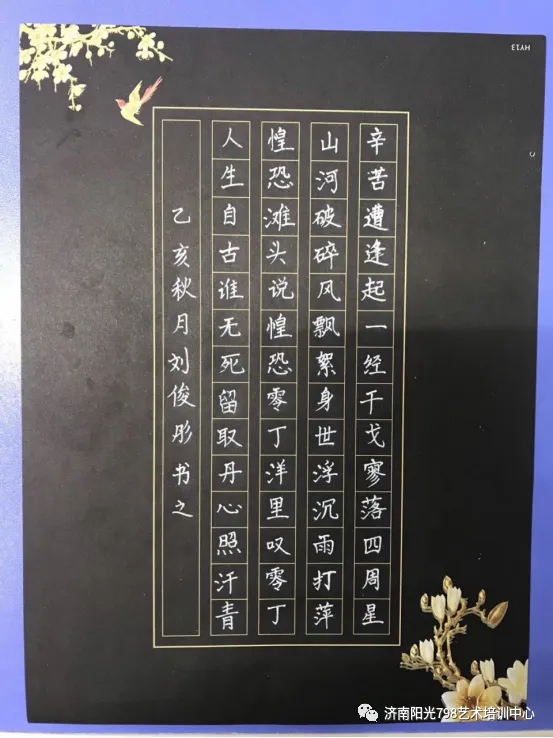 辛苦遭逢起一经干戈寥落四周星
山河破碎风飘絮身世浮沉雨打萍
惶恐滩头说惶恐零丁洋里叹零丁
人生自古谁无死留取丹心照汗青
乙亥秋月刘俊彤书之
HY13
济南阳光798艺术培训中心